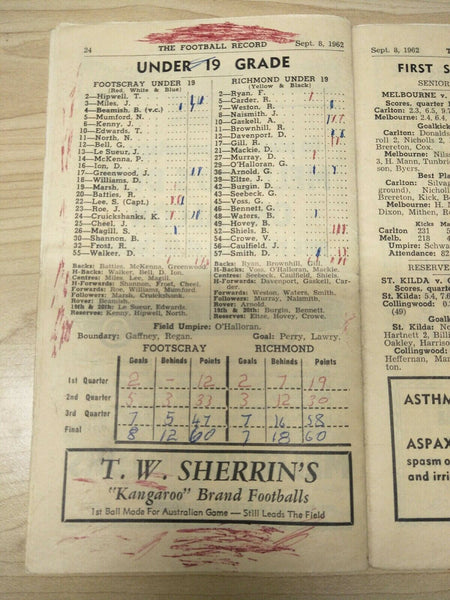 24
THE FOOTBALL RECORD
Sept. 8, 1962
UNDER 19 GRADE
FOOTSCRAY UNDER 19
(Red, White & Blue)
2—Hipwell, T.
3—Miles, J.
4—Beamish, B. (v.c.)
5—Mumford, N.
6—Kenny, J.
10—Edwards, T.
11—North, N.
12—Bell, G.
13—Le Sueur, J.
14—McKenna, P.
16—Ion, D.
17—Greenwood, J.
18—Williams, D.
19—Marsh, I.
20—Batties, R.
22—Lee, S. (Capt.)
23—Roe, J.
24—Cruickshanks, K.
25—Cheel, J.
26—Magill, S.
30—Shannon, B.
32—Frost, R.
55—Walker, D.
RICHMOND UNDER 19
(Yellow & Black)
2—Ryan, F.
5—Carder, R.
7—Weston, R.
8—Naismith, J.
10—Gaskell, A.
11—Brownhill, R.
12—Davenport, D.
17—Gill, R.
21—Mackie, D.
27—Murray, D.
29—O'Halloran, G.
36—Arnold, G.
39—Elize, J.
42—Burgin, D.
43—Seebeck, G.
45—Voss, G.
46—Bennett, G.
48—Waters, B.
49—Hovey, B.
52—Shiels, B.
54—Crowe, V.
56—Caulfield, J.
57—Smith, I.
Backs: Batties, McKenna, Greenwood.
H-Backs: Walker, Bell, D. Ion.
Centres: Miles, Lee, Magill.
H-Forwards: Shannon, Frost, Cheel.
Forwards: Roe, Williams, Mumford.
Followers: Marsh, Cruickshanks.
Rover: Beamish.
19th & 20th: Le Sueur, Edwards.
Reserves: Kenny, Hipwell, North.
Backs: Ryan, Brownhill, Gill.
H-Backs: Voss, O'Halloran, Mackie.
Centres: Seebeck, Caulfield, Shiels.
H-Forwards: Davenport, Gaskell, Carder.
Forwards: Weston, Waters, Smith.
Followers: Murray, Naismith.
Rover: Arnold.
19th & 20th: Burgin, Bennett.
Reserves: Elize, Hovey, Crowe.
Field Umpire: O'Halloran.
Boundary: Gaffney, Regan.
Goal: Perry, Lawry.
FOOTSCRAY RICHMOND
Goals Behinds Points Goals Behinds Points
1st Quarter 2 - 12 2 7 19
2nd Quarter 5 3 33 3 12 30
3rd Quarter 7 5 47 7 16 58
Final 8 12 60 7 18 60
T. W. SHERRIN'S
"Kangaroo" Brand Footballs
1st Ball Made For Australian Game — Still Leads The Field
Sept. 8, 1962
FIRST S
SENIOR
MELBOURNE v.
Scores, quarter
Carlton: 2.3, 6.5, 9.7
Melbourne: 2.4, 6.4,
Goalkick
Carlton: Donalds
roll 2, Nicholls 2,
Brereton, Cox.
Melbourne: Nilss
H. Mann, Tunbri
son, Byers.
Best Pla
Carlton: Silvag
ground), Nicholls
Brereton, Kick, B
Melbourne: H. M
Dixon, Mithen, R
Kicks
Carlton 231
Melb. 218
Umpire: Schwa
Attendance: 82
RESERVE
ST. KILDA v. C
Scores, quarter
St. Kilda: 5.4, 7.6
Collingwood: 0.
(49)
Goal
St. Kilda: Nel
ett, Hartigan, B
Oakley, Harrison
Collingwood:
Heffernan, Mar
ten.
ASTHM
ASPAX
spasm o
and irri